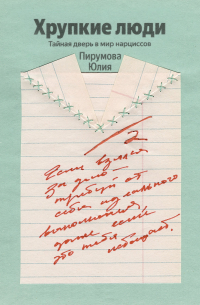 Хрупкие люди
Тайная дверь в мир нарциссов
Пирумова
Юлия
Если взялся
за дело —
требуй от
себя идеального
выполнения,
даже если
это тебя